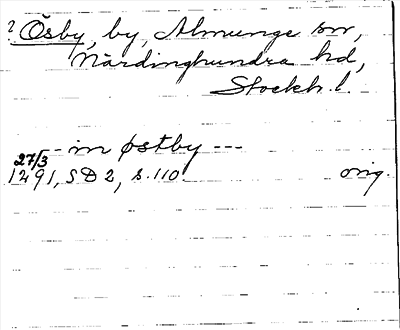 ? Ösby, by, Almunge sn,
Närdinghundra hd,
Stockh. l.
-- in østby ---
27/3
1291, SD 2, s. 110. orig.